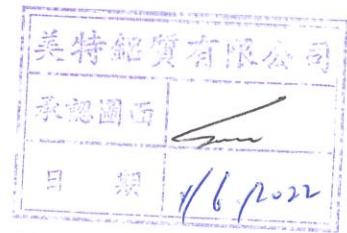 美特質有限公司
承認圖面
日期 1/6/2022